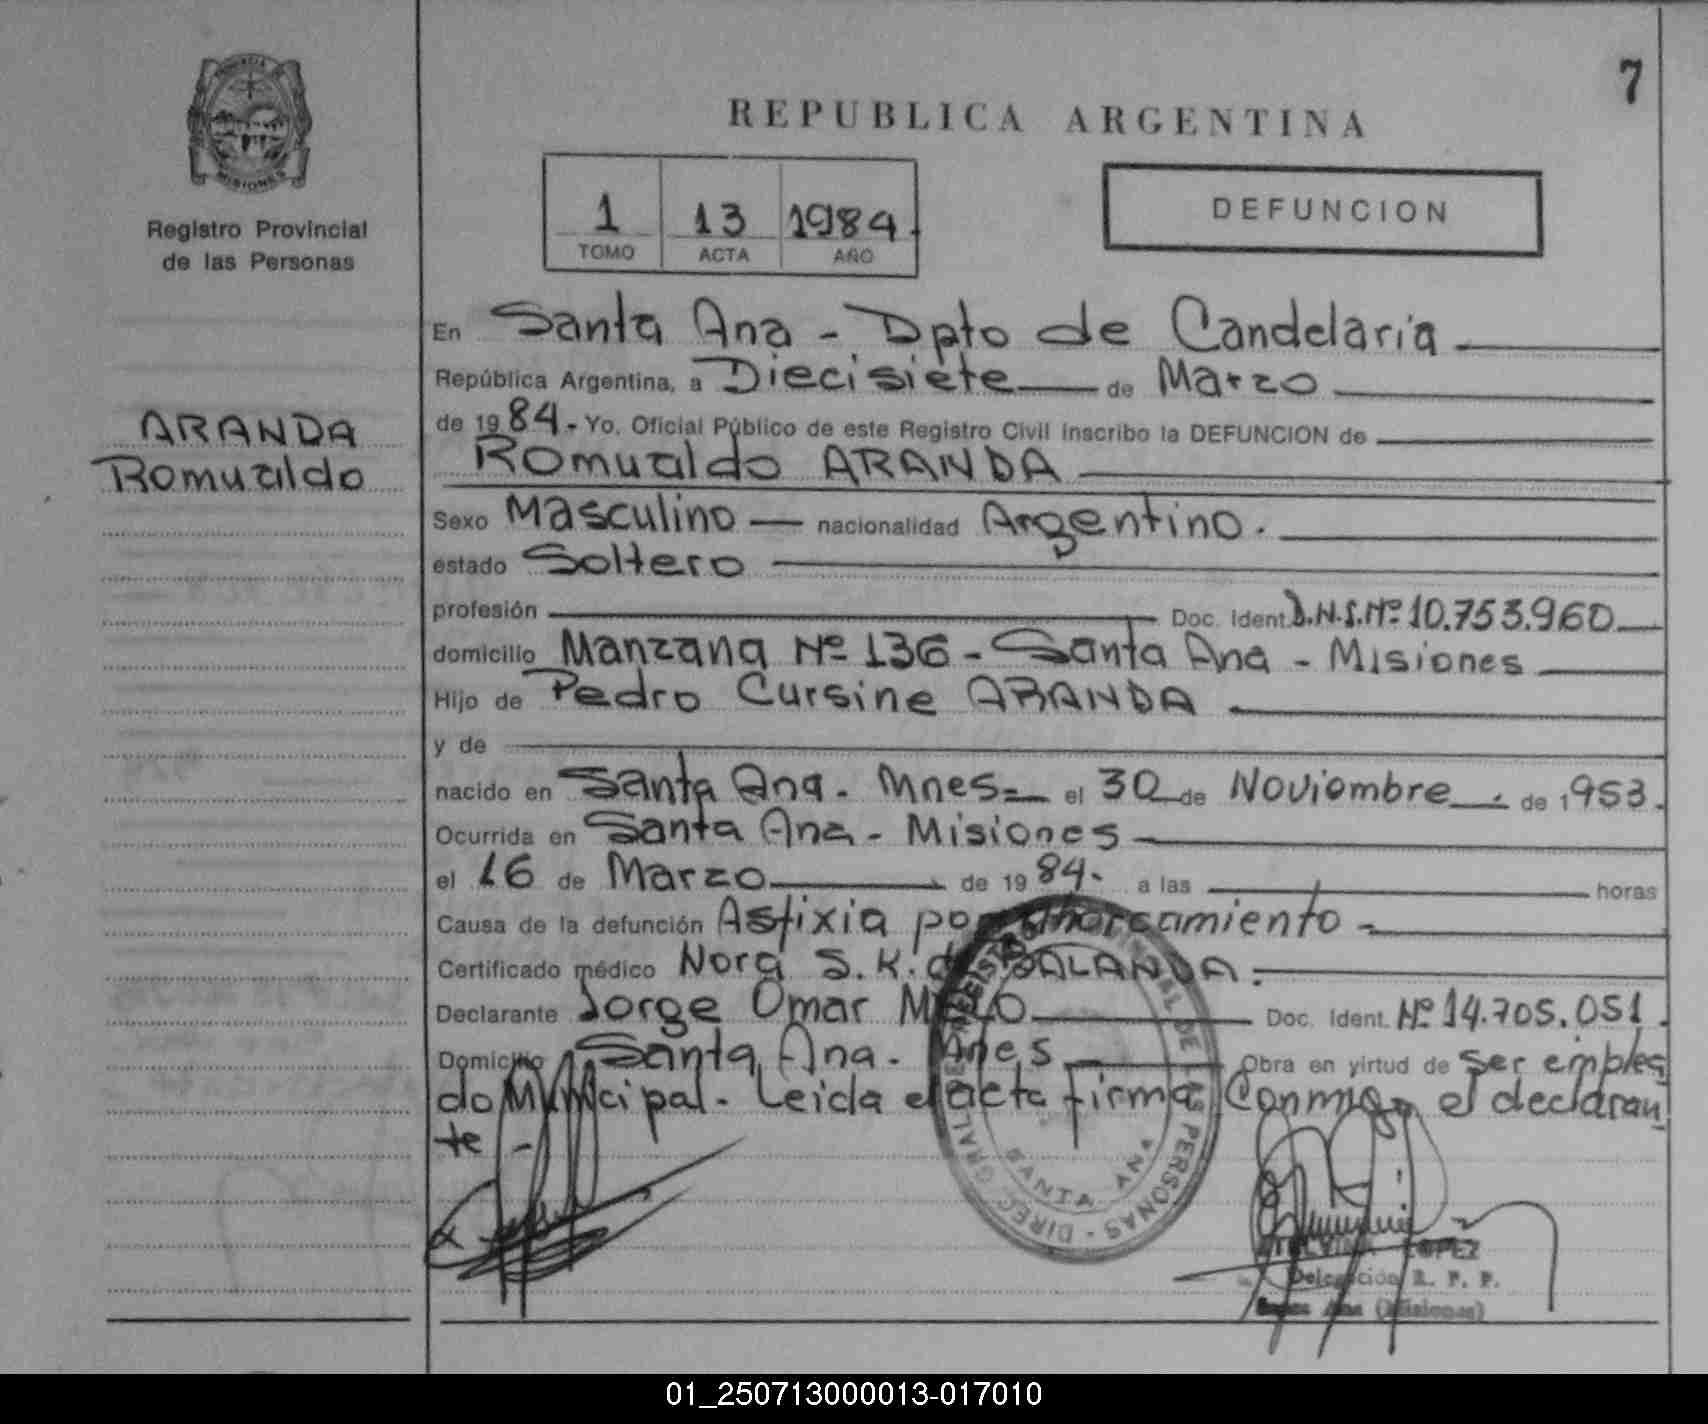 7
REPUBLICA ARGENTINA
PROVINCIA
MISIONES
Registro Provincial
de las Personas
1 13 1984.
TOMO ACTA AÑO
DEFUNCION
ARANDA
Romualdo
En Santa Ana - Dpto de Candelaria
República Argentina, a Diecisiete de Marzo
de 1984. Yo, Oficial Público de este Registro Civil inscribo la DEFUNCION de
Romualdo ARANDA
Sexo Masculino — nacionalidad Argentino.
estado Soltero
profesión Doc. Ident. D.N.I.Nº 10.753.960
domicilio Manzana Nº 136 - Santa Ana - Misiones
Hijo de Pedro Cursine ARANDA
y de
nacido en Santa Ana. Mnes= el 30 de Noviembre. de 1953.
Ocurrida en Santa Ana - Misiones
el 16 de Marzo de 1984. a las horas
Causa de la defunción Asfixia por ahorcamiento -
Certificado médico Nora S. K. de
Declarante Jorge Omar Doc. Ident. Nº 14.705.051.
Domicilio Santa Ana. Mnes Obra en virtud de ser emplea
do Municipal. Leida el acta firma Conmigo el declaran
te -
REGISTRO PROVINCIAL DE LAS PERSONAS - DIREC. GRAL.
SANTA ANA
LOPEZ
Delegación R. P. P.
Santa Ana (Misiones)
01_250713000013-017010